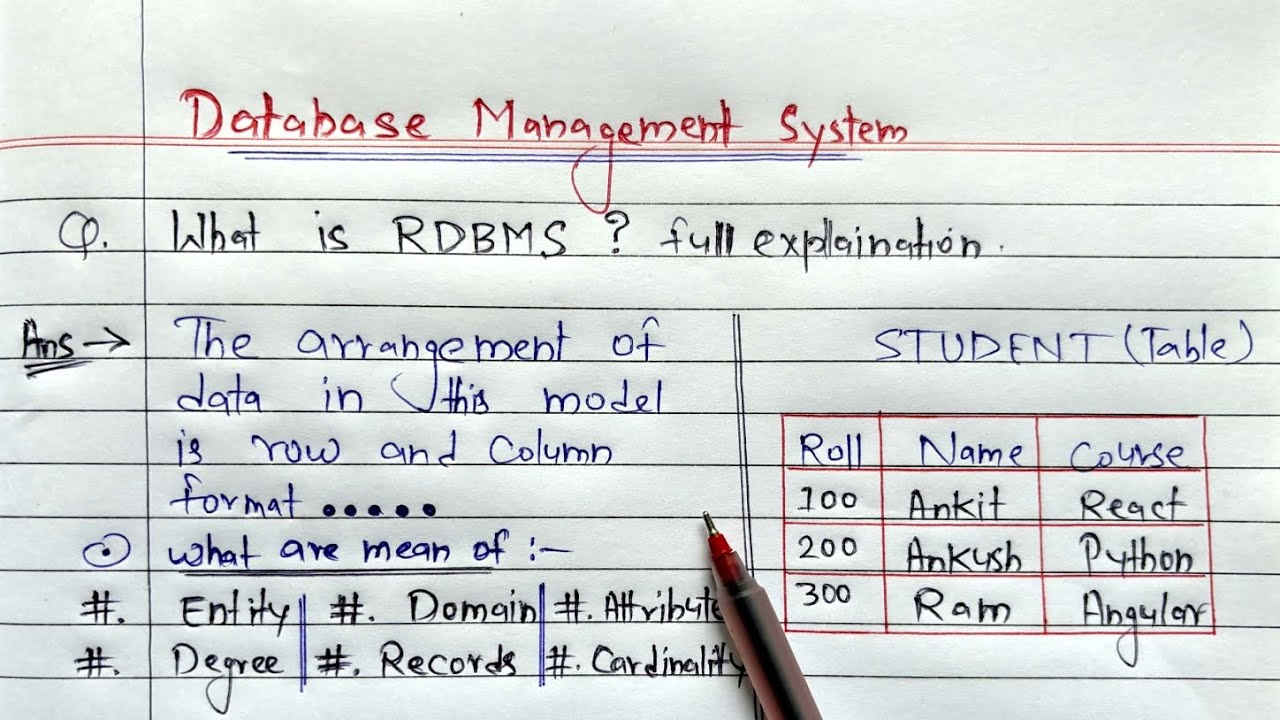 Database Management System
Q. What is RDBMS ? full explaination.
Ans → The arrangement of
data in this model
is row and column
format .....
what are mean of :-
#. Entity | #. Domain | #. Attribute
#. Degree | #. Records | #. Cardinality
STUDENT (Table)
Roll Name Course
100 Ankit React
200 Ankush Python
300 Ram Angular